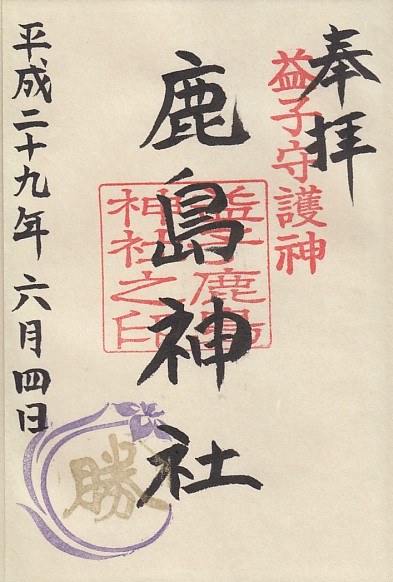 奉拝
益子守護神
鹿島神社
益子鹿島
神社之印
平成二十九年 六月四日
勝